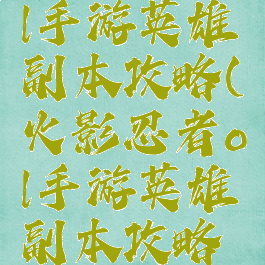 |手游英雄
副本攻略(
火影忍者。
|手游英雄
副本攻略